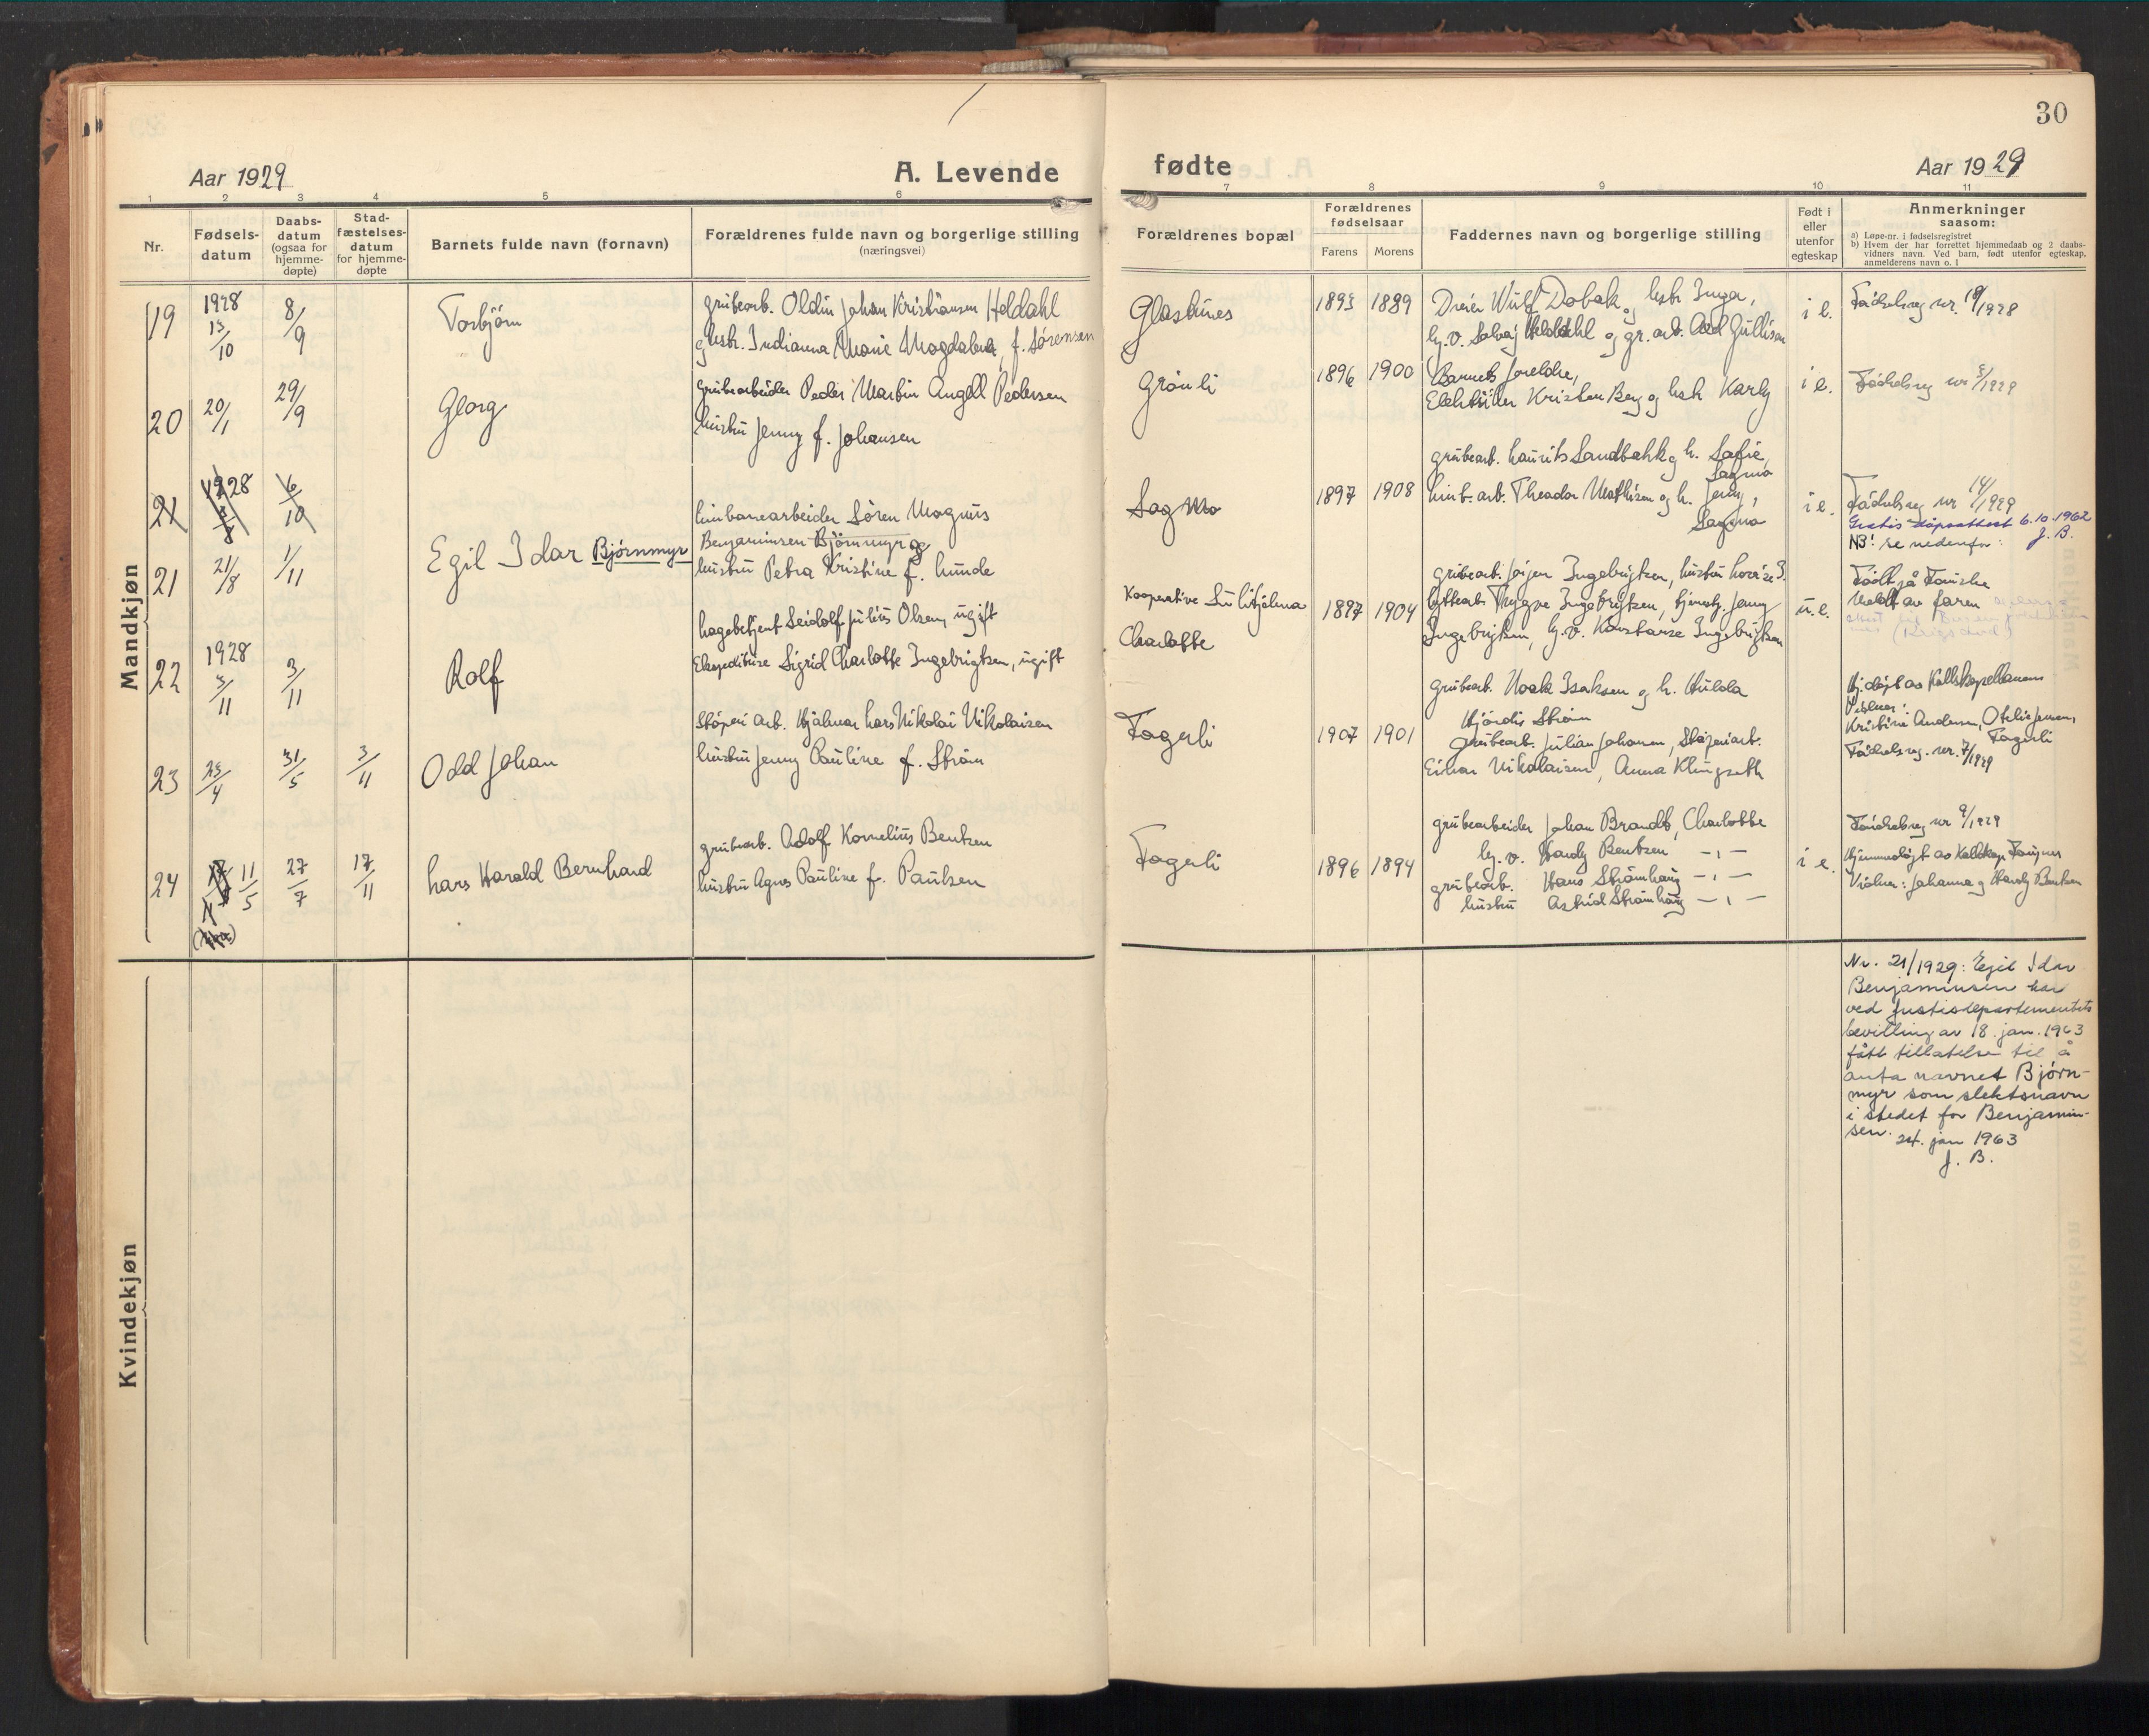 30
Aar 1929
A. Levende
fødte
Aar 1929
1 2 3 4 5 6 7 8 9 10 11
Nr.
Fødsels-
datum
Daabs-
datum
(ogsaa for
hjemme-
døpte)
Stad-
fæstelses-
datum
for hjemme-
døpte
Barnets fulde navn (fornavn)
Forældrenes fulde navn og borgerlige stilling
(næringsvei)
Forældrenes bopæl
Forældrenes
fødselsaar
Farens Morens
Faddernes navn og borgerlige stilling
Født i
eller
utenfor
egteskap
Anmerkninger
saasom:
a) Løpe-nr. i fødselsregistret
b) Hvem der har forrettet hjemmedaab og 2 daabs-
vidners navn. Ved barn, født utenfor egteskap,
anmelderens navn o. l
Mandkjøn
19
1928
15/10
8/9
Torbjørn
grubearb. Oldin Johan Kristiansen Heldahl
og hstr. Indianna Marie Magdalena, f. Sørensen
Glastunes
1893 1889
Dreier Wulf Dobak og hstr Inga,
i e.
Fødselsreg nr. 18/1928
20
20/1
29/9
Georg
grubearbeider Peder Martin Angell Pedersen
hustru Jenny f. Johansen
Grønli
1896 1900
Barnets foreldre,
Kristen Berg og hstr Karly
i e.
Fødselsreg nr 5/1929
21
1928
3/8
6/10
21
21/8
1/11
Egil Idar Bjørnmyr
linbanearbeider Søren Magnus
Benjaminsen Bjørnmyr og
hustru Petra Kristine f. Lunde
Sagmo
1897 1908
grubearb. Laurits Sandbakk og h. Sofie,
Sagmo
linb. arb. Theodor Mathisen og h. Jenny,
Sagmo
i e.
Fødselsreg nr 14/1929
Gratis dåpsattest 6.10.1962
J. B.
NB! se nedenfor:
22
1928
3/11
3/11
Rolf
lagebetjent Seidolf Julius Olsen, ugift
Ekspeditrise Sigrid Charlotte Ingebrigtsen, ugift
Kooperative Sulitjelma
Charlotte
1897 1904
grubearb. Jørgen Ingebrigtsen, hustru Lovise I.
Trygve Ingebrigtsen, tjenestp. Jenny
Ingebrigtsen, Konstanse Ingebrigtsen
u. e.
Født på Fauske
Meldt av faren
23
25/4
31/5
3/11
Odd Johan
Støperi arb. Hjalmar Lars Nikolai Nikolaisen
hustru Jenny Pauline f. Strøm
Fagerli
1907 1901
grubearb. Noak Isaksen og h. Hulda
Hjørdis Strøm
grubearb. Julian Johansen, Støperiarb.
Einar Nikolaisen, Anna Klungseth
Hj. døpt av Kallskapellanen
Vidner:
Kristine Andersen, Otelie Jensen,
Fagerli
Fødselsreg. nr. 7/1929
24
11/5
27/7
17/11
Lars Harald Bernhard
grubearb. Adolf Kornelius Bentsen
hustru Agnes Pauline f. Paulsen
Fagerli
1896 1894
grubearbeider Johan Brandt, Charlotte
Hardy Bentsen — „ —
grubearb. Hans Strømhaug — „ —
hustru Astrid Strømhaug — „ —
i e.
Fødselsreg nr 9/1929
Hjemmedøpt av Kallskap
Vidner: Johanna og Hardy Bentsen
Kvindekjøn
Nr. 21/1929: Egil Idar
Benjaminsen har
ved Justisdepartementets
bevilling av 18. jan. 1963
fått tillatelse til å
anta navnet Bjørn-
myr som slektsnavn
i stedet for Benjamin-
sen. 24. jan 1963
J. B.